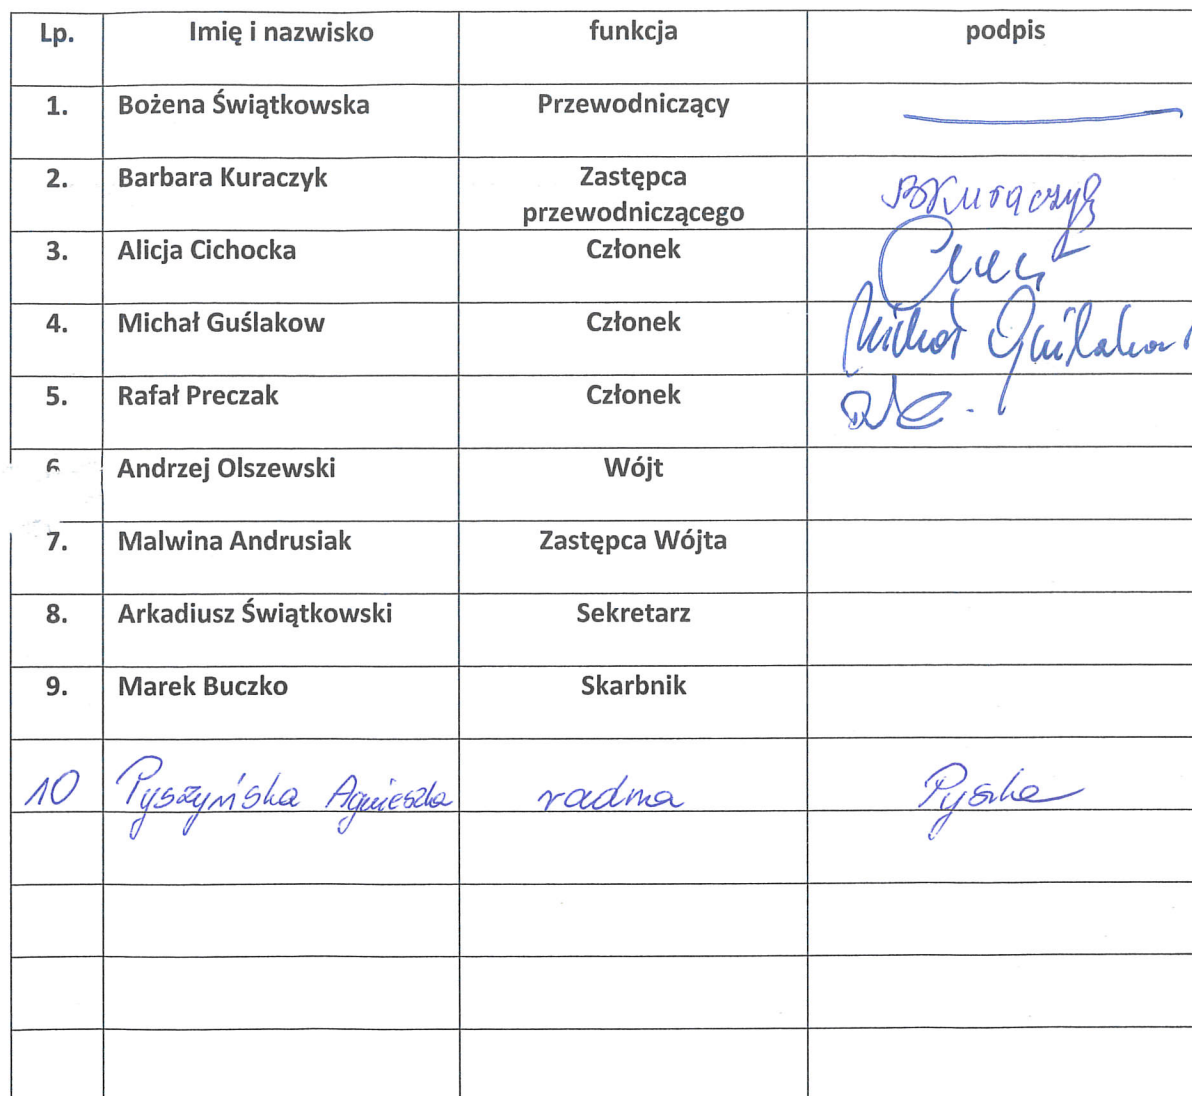 Lp. Imię i nazwisko funkcja podpis
1. Bożena Świątkowska Przewodniczący
2. Barbara Kuraczyk Zastępca
przewodniczącego BKuraczyk
3. Alicja Cichocka Członek
4. Michał Guślakow Członek Michał Guślakow
5. Rafał Preczak Członek
6 Andrzej Olszewski Wójt
7. Malwina Andrusiak Zastępca Wójta
8. Arkadiusz Świątkowski Sekretarz
9. Marek Buczko Skarbnik
10 Pyszyńska Agnieszka radna